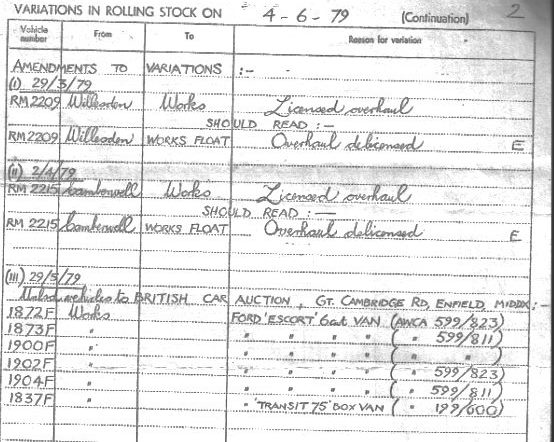 VARIATIONS IN ROLLING STOCK ON 4-6-79 (Continuation) 2
Vehicle number From To Reason for variation
AMENDMENTS TO VARIATIONS :-
(i) 29/3/79
RM2209 Willesden Works Licensed overhaul
SHOULD READ :-
RM2209 Willesden WORKS FLOAT Overhaul delicensed E
(ii) 2/4/79
RM 2215 Camberwell Works Licensed overhaul
SHOULD READ :-
RM 2215 Camberwell WORKS FLOAT Overhaul delicensed E
(iii) 29/5/79
vehicles to BRITISH CAR AUCTION, GT. CAMBRIDGE RD, ENFIELD, MIDDX :-
1872F Works FORD 'ESCORT' 6cwt VAN (AWCA 599/823)
1873F " " " " " ( " 599/811)
1900F " " " " " ( " " )
1902F " " " " " ( " 599/823)
1904F " " " " " ( " 599/811)
1837F " " 'TRANSIT 75' BOX VAN ( " 199/600)